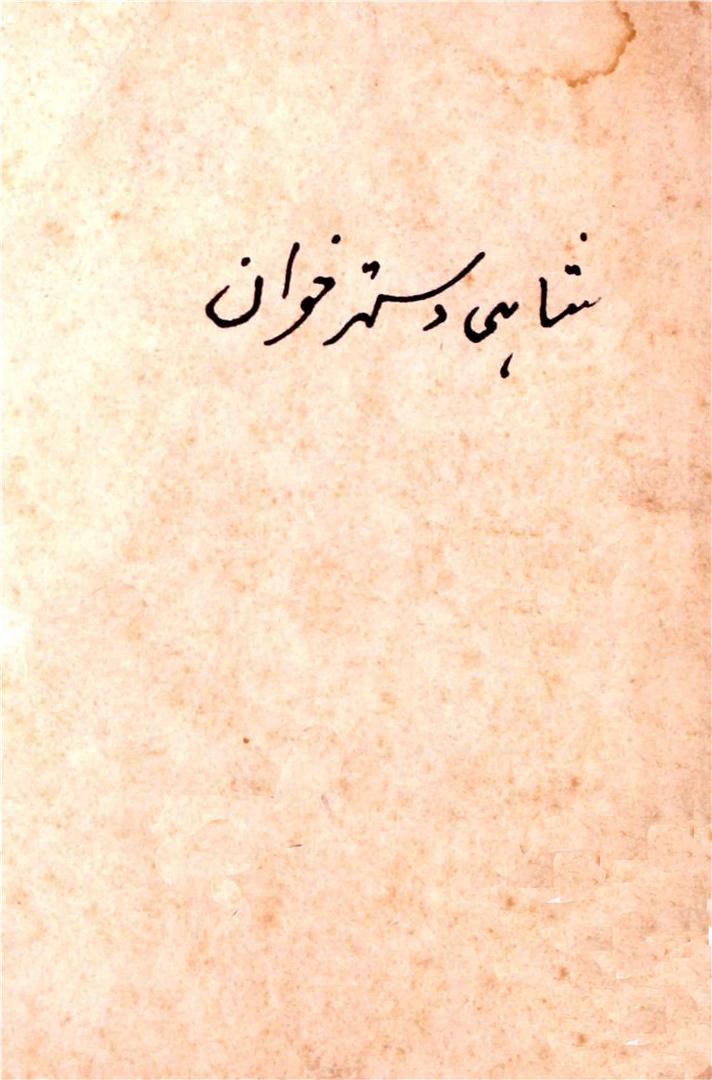 شاہی دسترخوان